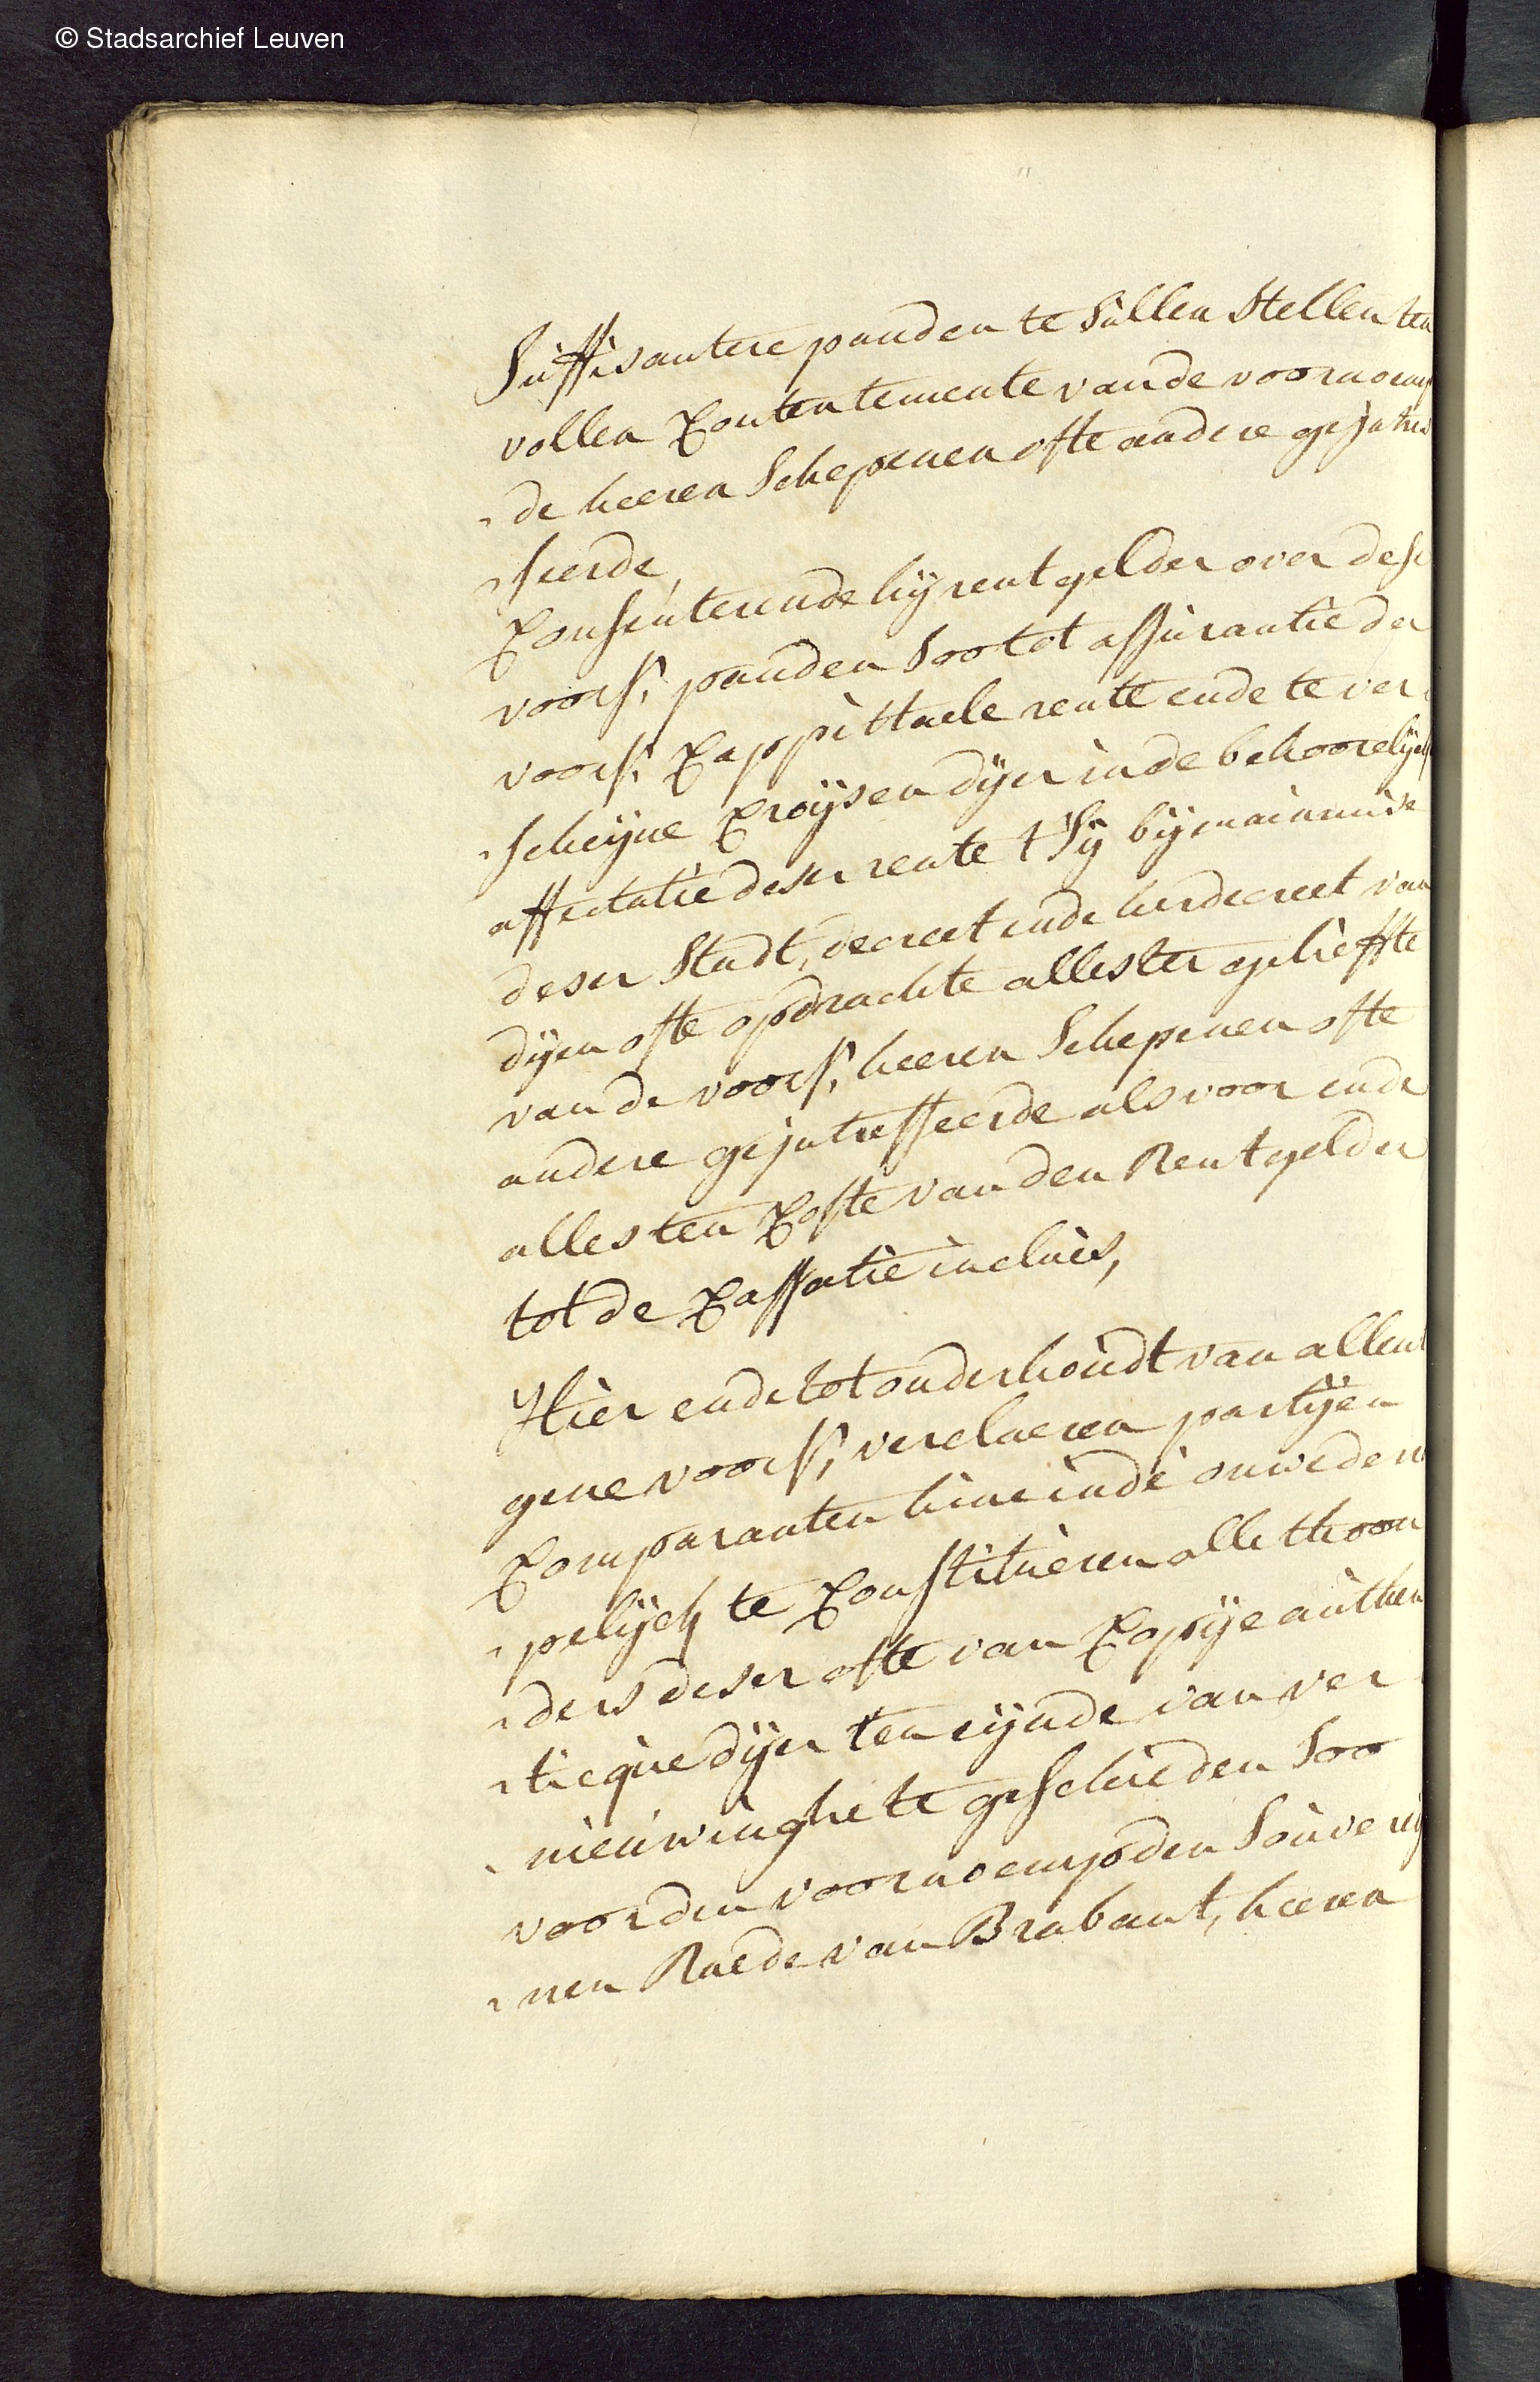 © Stadsarchief Leuven
Suffisantere panden te sullen stellen ten
vollen Contentemente vande voornoemp
de heeren schepenen ofte andere gejntres
seerde,
Consenterende hij rentgelder over dese
voors. panden soo tot assurantie der
voors. Cappittaele rente ende te ver
scheijne Croijsen dijer inde behoorelijck
affectatie deser rente t'sij bij mainmise
deser stadt, decreet ende herdecreet van
dijen ofte opdrachte alles ter geliefte
van de voors. heeren schepenen ofte
andere gejntresseerde als voor ende
alles ten Coste van den Rentgelder
tot de Cassatie incluis,
Hier ende tot onderhoudt van allent
gene voors, verclaeren partijen
Comparanten hinc inde onweder
pelijck te Constitueren alle thoon
ders deser ofte van Copije authen
ticque dijer ten eijnde van ver
nieuwinghe te geschieden soo
voor den voornoempden souverij
nen Raede van Brabant, heeren